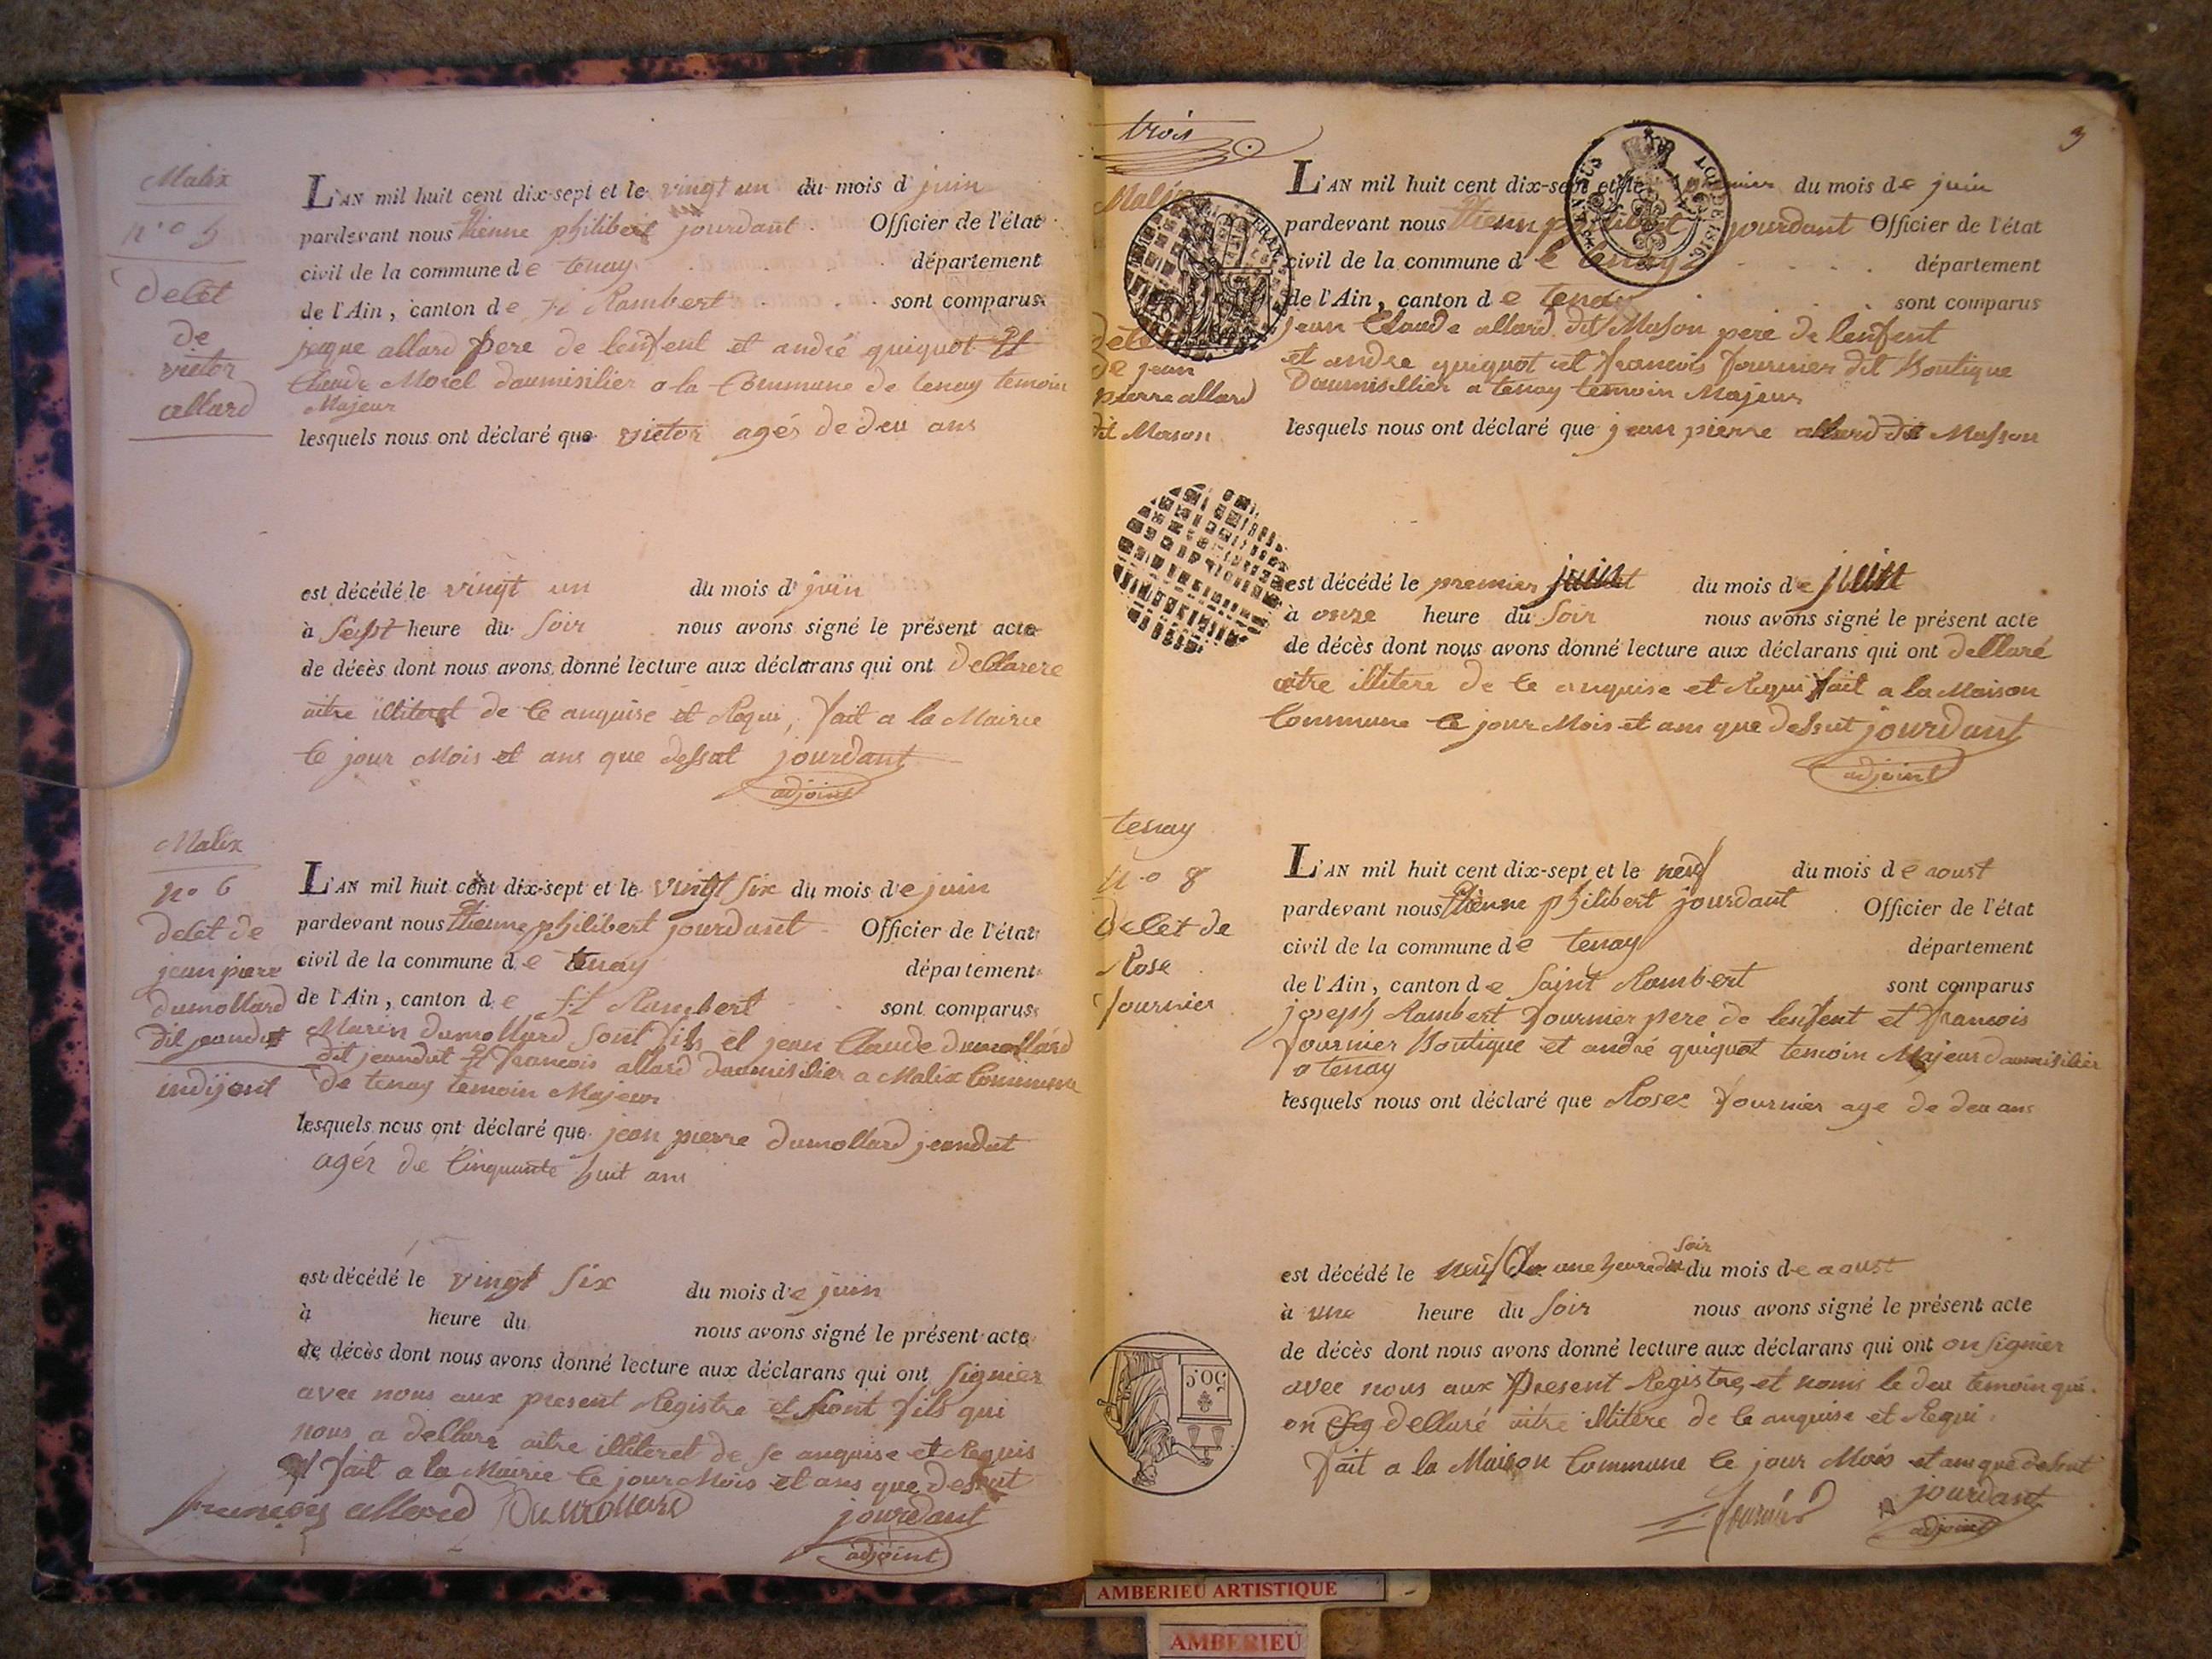 Malix
n.o 5
decet
de
victor
allard
L'AN mil huit cent dix-sept et le vingt un du mois d juin
pardevant nous Etienne philibert jourdant Officier de l'état
civil de la commune de tenay département
de l'Ain, canton de St Rambert sont comparus
jaque allard pere de lenfent et andré guiguot Et
Claude Morel daumisilier a la Commune de tenay temoin
Majeur
lesquels nous ont déclaré que victor agés de deu ans
est décédé le vingt un du mois d' juin
à sept heure du soir nous avons signé le présent acte
de décès dont nous avons donné lecture aux déclarans qui ont dellarere
aitre illiteret de ce anquise et Requi, fait a la Mairie
le jour Mois et ans que dessut jourdant
adjoint
Malix
no 6
decet de
jean pierre
dumollard
dit jeandut
indijent
L'AN mil huit cent dix-sept et le vingt six du mois de juin
pardevant nous Etienne philibert jourdant Officier de l'état
civil de la commune de tenay département
de l'Ain, canton de St Rambert sont comparus
Marin dumollard sont fils et jean Claude dumollard
dit jeandut Et francois allard daumisilier a Malix Commune
de tenay temoin Majeur
lesquels nous ont déclaré que jean pierre dumollard jeandut
agér de Cinquante huit ans
est décédé le vingt six du mois de juin
à heure du nous avons signé le présent acte
de décès dont nous avons donné lecture aux déclarans qui ont signier
avec nous aux present Registre et sont fils qui
nous a dellare aitre illiteret de se anquise et Requis
fait a la Mairie le jour Mois et ans que dessut
francois allard Dumollard jourdant
adjoint
trois
3
Malix
decet
de jean
pierre allard
dit Mason
L'AN mil huit cent dix-sept et le premier du mois de juin
pardevant nous Etienn philibert jourdant Officier de l'état
civil de la commune d e tenay département
de l'Ain, canton de tenay sont comparus
jean Claude allard dit Mason pere de lenfent
et andre guiguot et francois fournier dit Boutique
Daumisillier a tenay temoin Majeur
lesquels nous ont déclaré que jean pierre allard dit Masson
est décédé le premier du mois de
à onze heure du soir nous avons signé le présent acte
de décès dont nous avons donné lecture aux déclarans qui ont dellaré
aitre illitere de ce anquise et Requi fait a la Maison
Commune le jour Mois et ans que dessut jourdant
adjoint
tenay
n.o 8
decet de
Rose
fournier
L'AN mil huit cent dix-sept et le neuf du mois de aoust
pardevant nous Etienne philibert jourdant Officier de l'état
civil de la commune de tenay département
de l'Ain, canton de Saint Rambert sont comparus
joseph Rambert fournier pere de lenfent et francois
fournier Boutique et andré guiguot temoin Majeur daumisilier
a tenay
lesquels nous ont déclaré que Rose fournier age de deu ans
soir
est décédé le neuf une heure du du mois de aoust
à une heure du soir nous avons signé le présent acte
de décès dont nous avons donné lecture aux déclarans qui ont on signier
avec nous aux present Registre et nomis le deu temoin qui
on dellaré aitre illitere de ce anquise et Requi
fait a la Maison Commune le jour Mois et ans que dessut
fournié jourdant
adjoint
50.C
AMBERIEU ARTISTIQUE
AMBERIEU